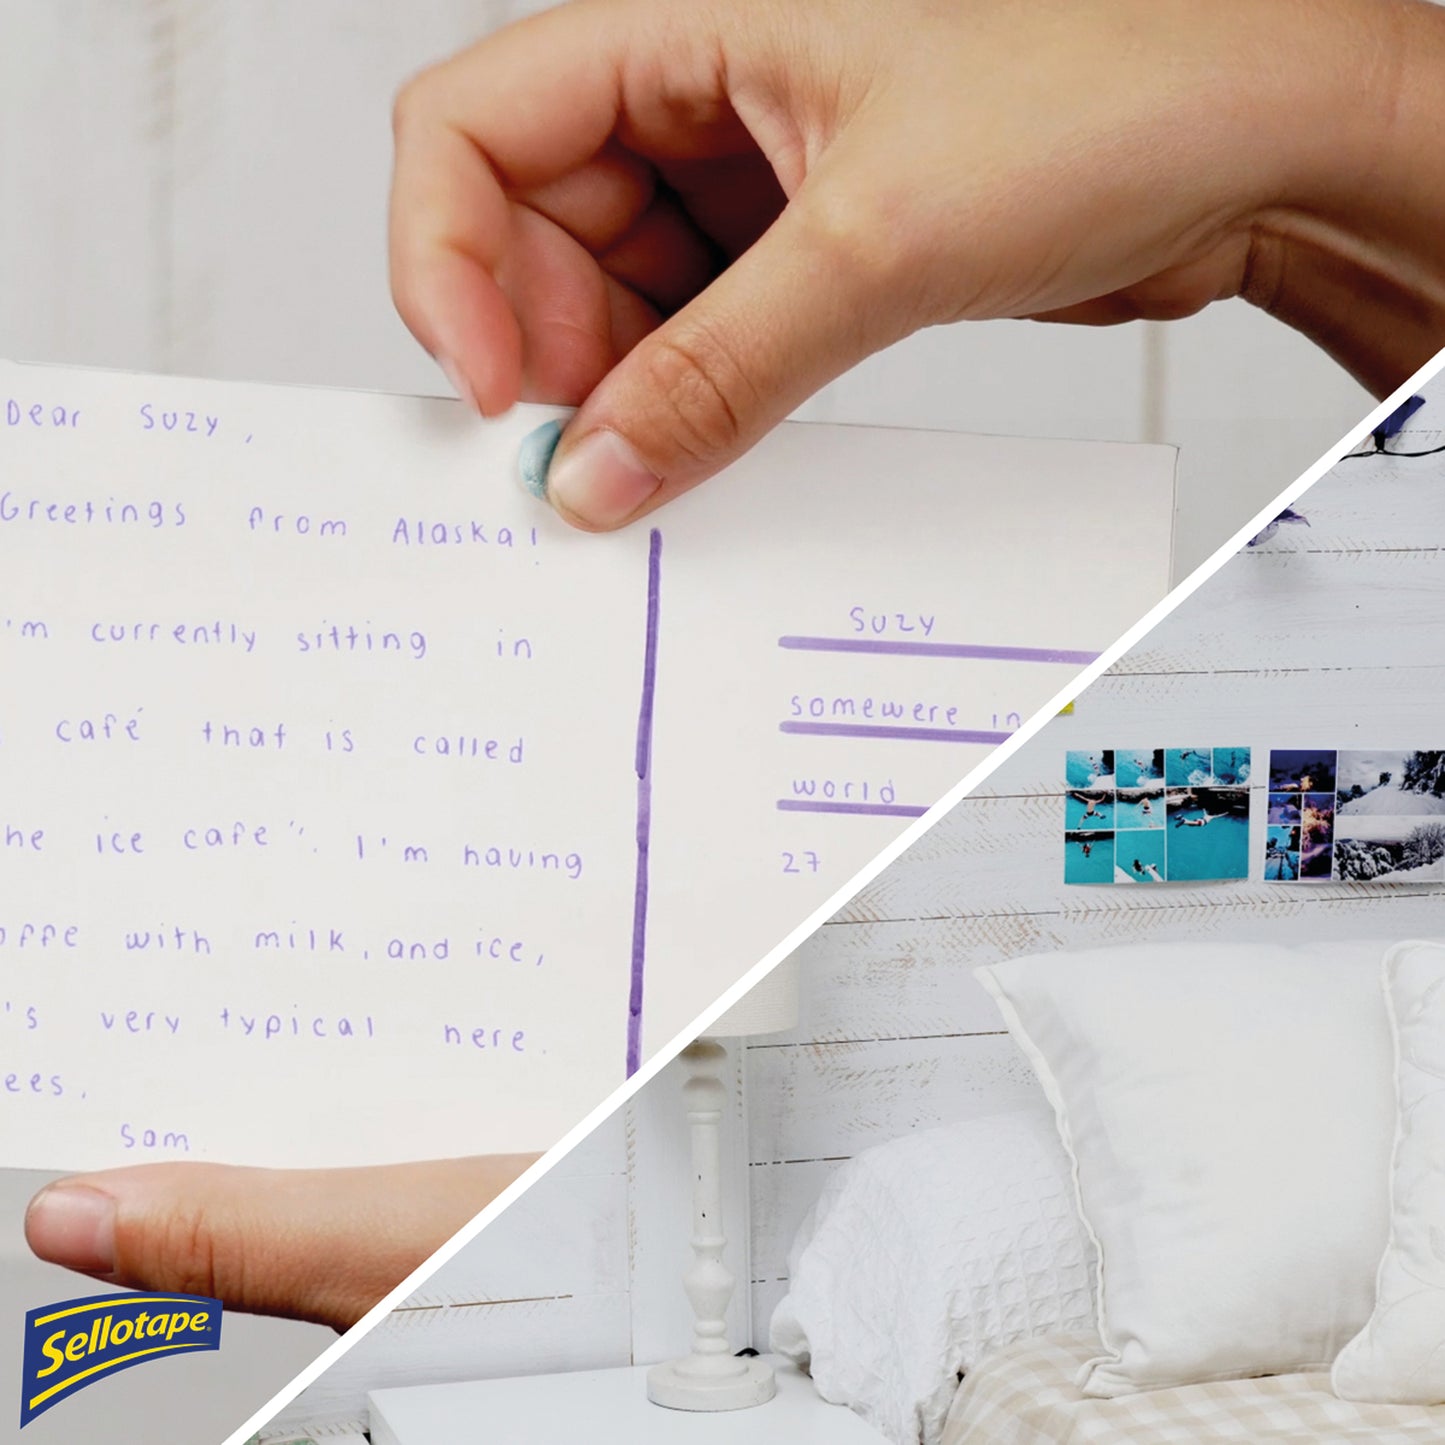 Dear Suzy,
Greetings from Alaska!
'm currently sitting in
café that is called
he ice cafe". I'm having
offe with milk, and ice,
's very typical here.
ees,
Sam
Suzy
somewere in
world
27
Sellotape